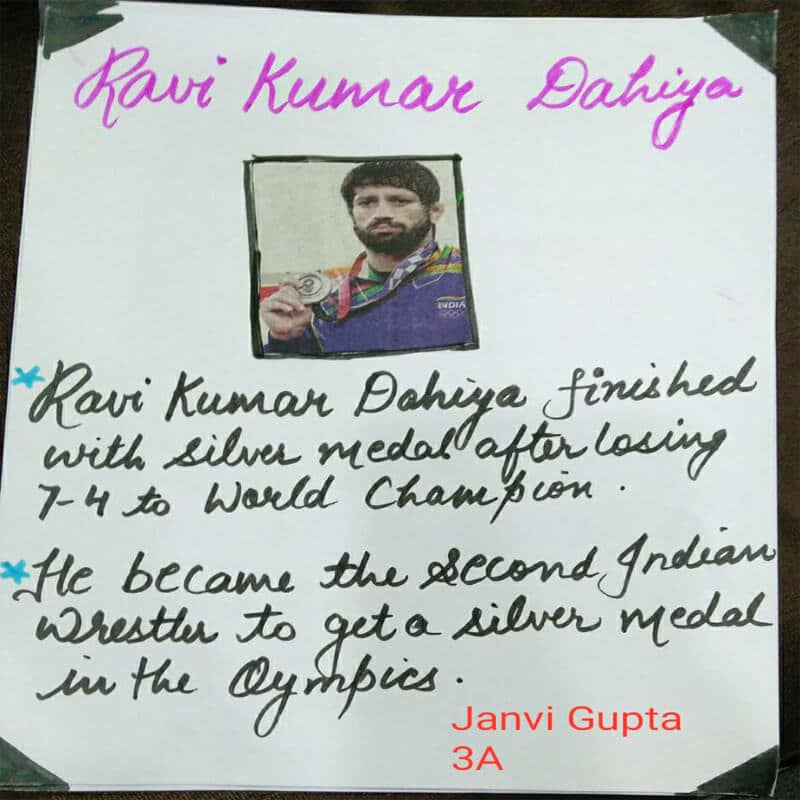 Ravi Kumar Dahiya
INDIA
*Ravi Kumar Dahiya finished
with silver medal after losing
7-4 to World Champion.
*He became the second Indian
Wrestler to get a silver medal
in the Oympics.
Janvi Gupta
3A